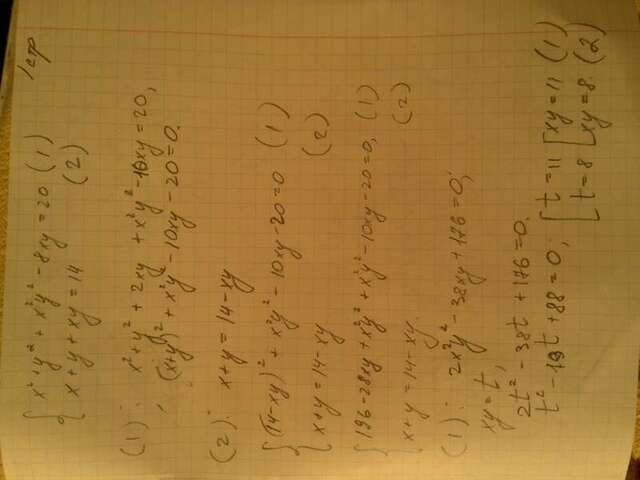 1 стр
{ x² + y² + x²y² - 8xy = 20 (1)
x + y + xy = 14 (2)
(1): x² + y² + 2xy + x²y² - 10xy = 20,
(x+y)² + x²y² - 10xy - 20 = 0.
(2): x + y = 14 - xy
{ (14 - xy)² + x²y² - 10xy - 20 = 0 (1)
x + y = 14 - xy (2)
{ 196 - 28xy + x²y² + x²y² - 10xy - 20 = 0, (1)
x + y = 14 - xy. (2)
(1): 2x²y² - 38xy + 176 = 0;
xy = t,
2t² - 38t + 176 = 0.
t² - 19t + 88 = 0; [ t = 11 [ xy = 11 (1)
t = 8 xy = 8. (2)